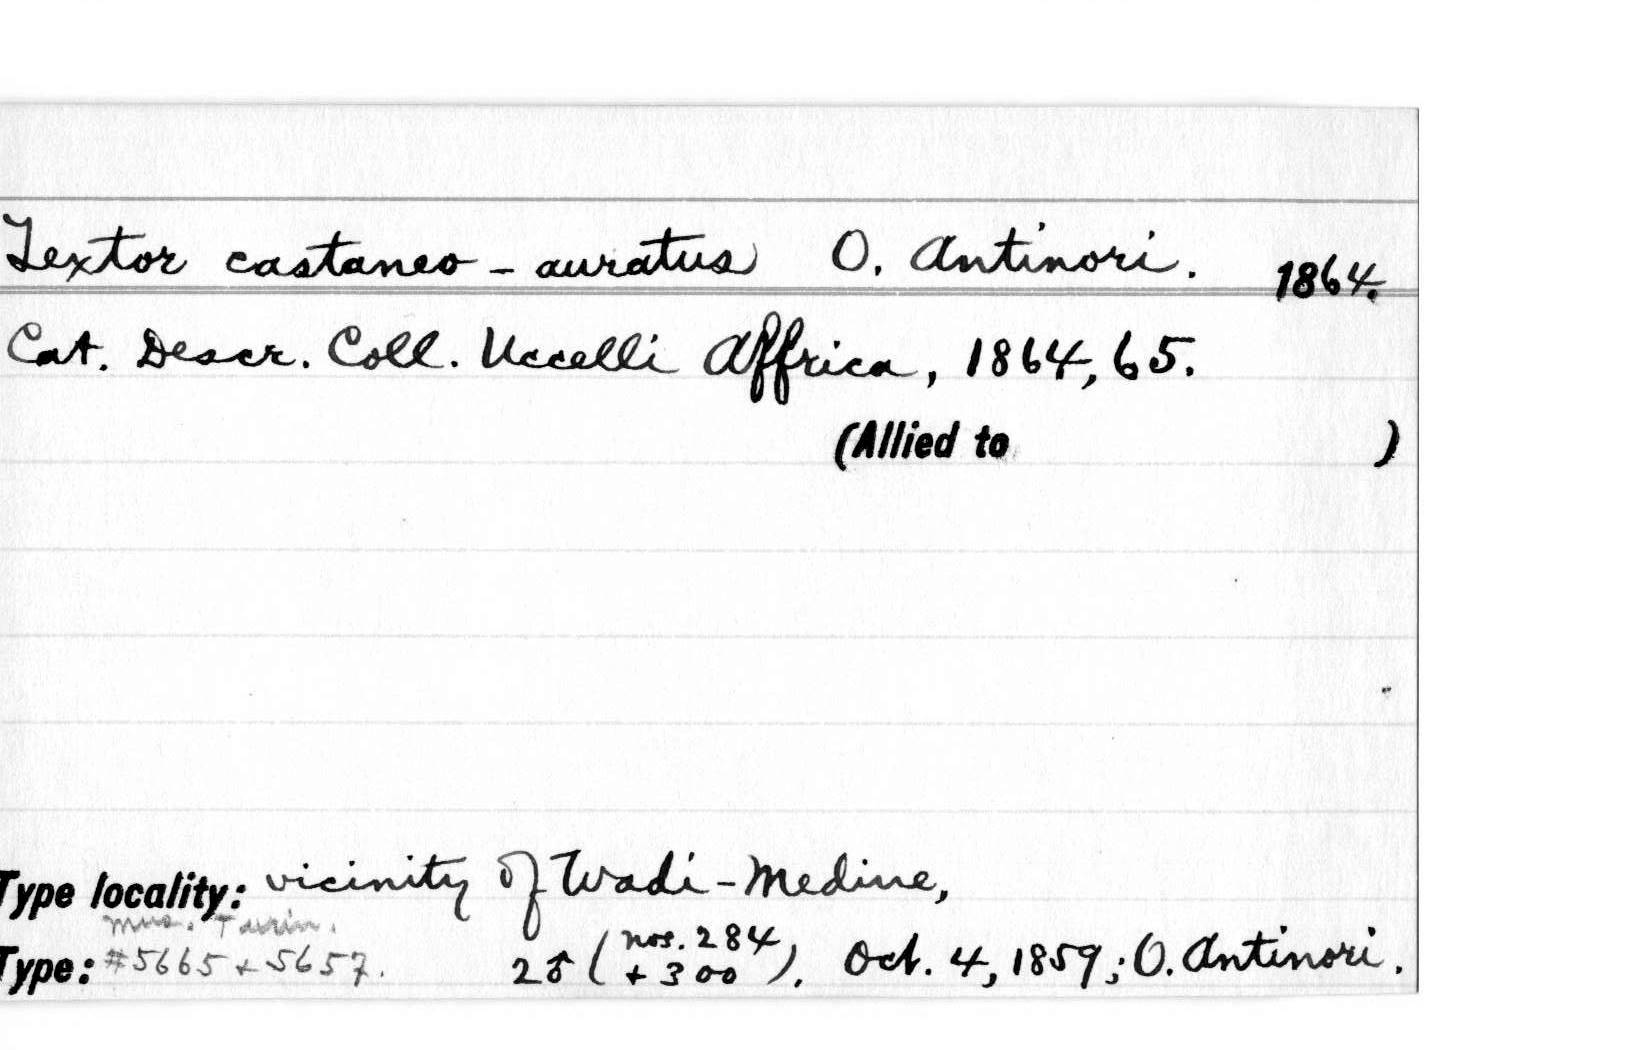 Textor castaneo-auratus O. Antinori. 1864.
Cat. Descr. Coll. Uccelli Affrica, 1864, 65.
(Allied to )
Type locality: vicinity of Wadi-Medine,
Mus. Turin.
Type: #5665 + 5657. 2♂ (nos. 284 + 300), Oct. 4, 1859; O. Antinori.